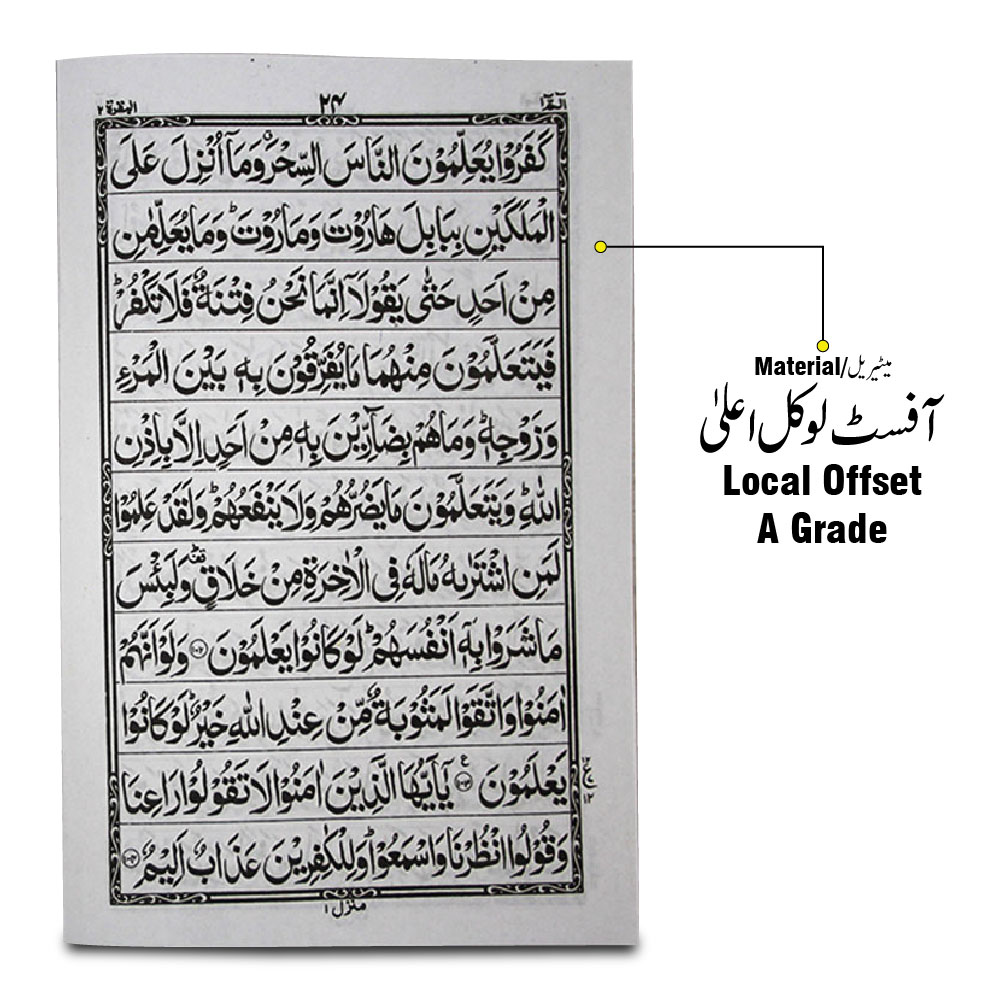 الٓمّٓ ۱
۲۴
البقرة ۲
كَفَرُوْا يُعَلِّمُوْنَ النَّاسَ السِّحْرَ ۗ وَمَاۤ اُنْزِلَ عَلَى
الْمَلَكَيْنِ بِبَابِلَ هَارُوْتَ وَمَارُوْتَ ؕ وَمَا يُعَلِّمٰنِ
مِنْ اَحَدٍ حَتّٰى يَقُوْلَاۤ اِنَّمَا نَحْنُ فِتْنَةٌ فَلَا تَكْفُرْ ؕ
فَيَتَعَلَّمُوْنَ مِنْهُمَا مَا يُفَرِّقُوْنَ بِهٖ بَيْنَ الْمَرْءِ
وَزَوْجِهٖ ؕ وَمَا هُمْ بِضَآرِّيْنَ بِهٖ مِنْ اَحَدٍ اِلَّا بِاِذْنِ
اللّٰهِ ؕ وَيَتَعَلَّمُوْنَ مَا يَضُرُّهُمْ وَلَا يَنْفَعُهُمْ ؕ وَلَقَدْ عَلِمُوْا
لَمَنِ اشْتَرٰىهُ مَا لَهٗ فِى الْاٰخِرَةِ مِنْ خَلَاقٍ ۛ وَلَبِئْسَ
مَا شَرَوْا بِهٖۤ اَنْفُسَهُمْ ؕ لَوْ كَانُوْا يَعْلَمُوْنَ ۝۱۰۲ وَلَوْ اَنَّهُمْ
اٰمَنُوْا وَاتَّقَوْا لَمَثُوْبَةٌ مِّنْ عِنْدِ اللّٰهِ خَيْرٌ ؕ لَوْ كَانُوْا
يَعْلَمُوْنَ ۝۱۰۳ ع يٰۤاَيُّهَا الَّذِيْنَ اٰمَنُوْا لَا تَقُوْلُوْا رَاعِنَا
وَقُوْلُوا انْظُرْنَا وَاسْمَعُوْا ؕ وَلِلْكٰفِرِيْنَ عَذَابٌ اَلِيْمٌ ۝۱۰۴
منزل ۱
Material/میٹیریل
آفسٹ لوکل اعلیٰ
Local Offset
A Grade